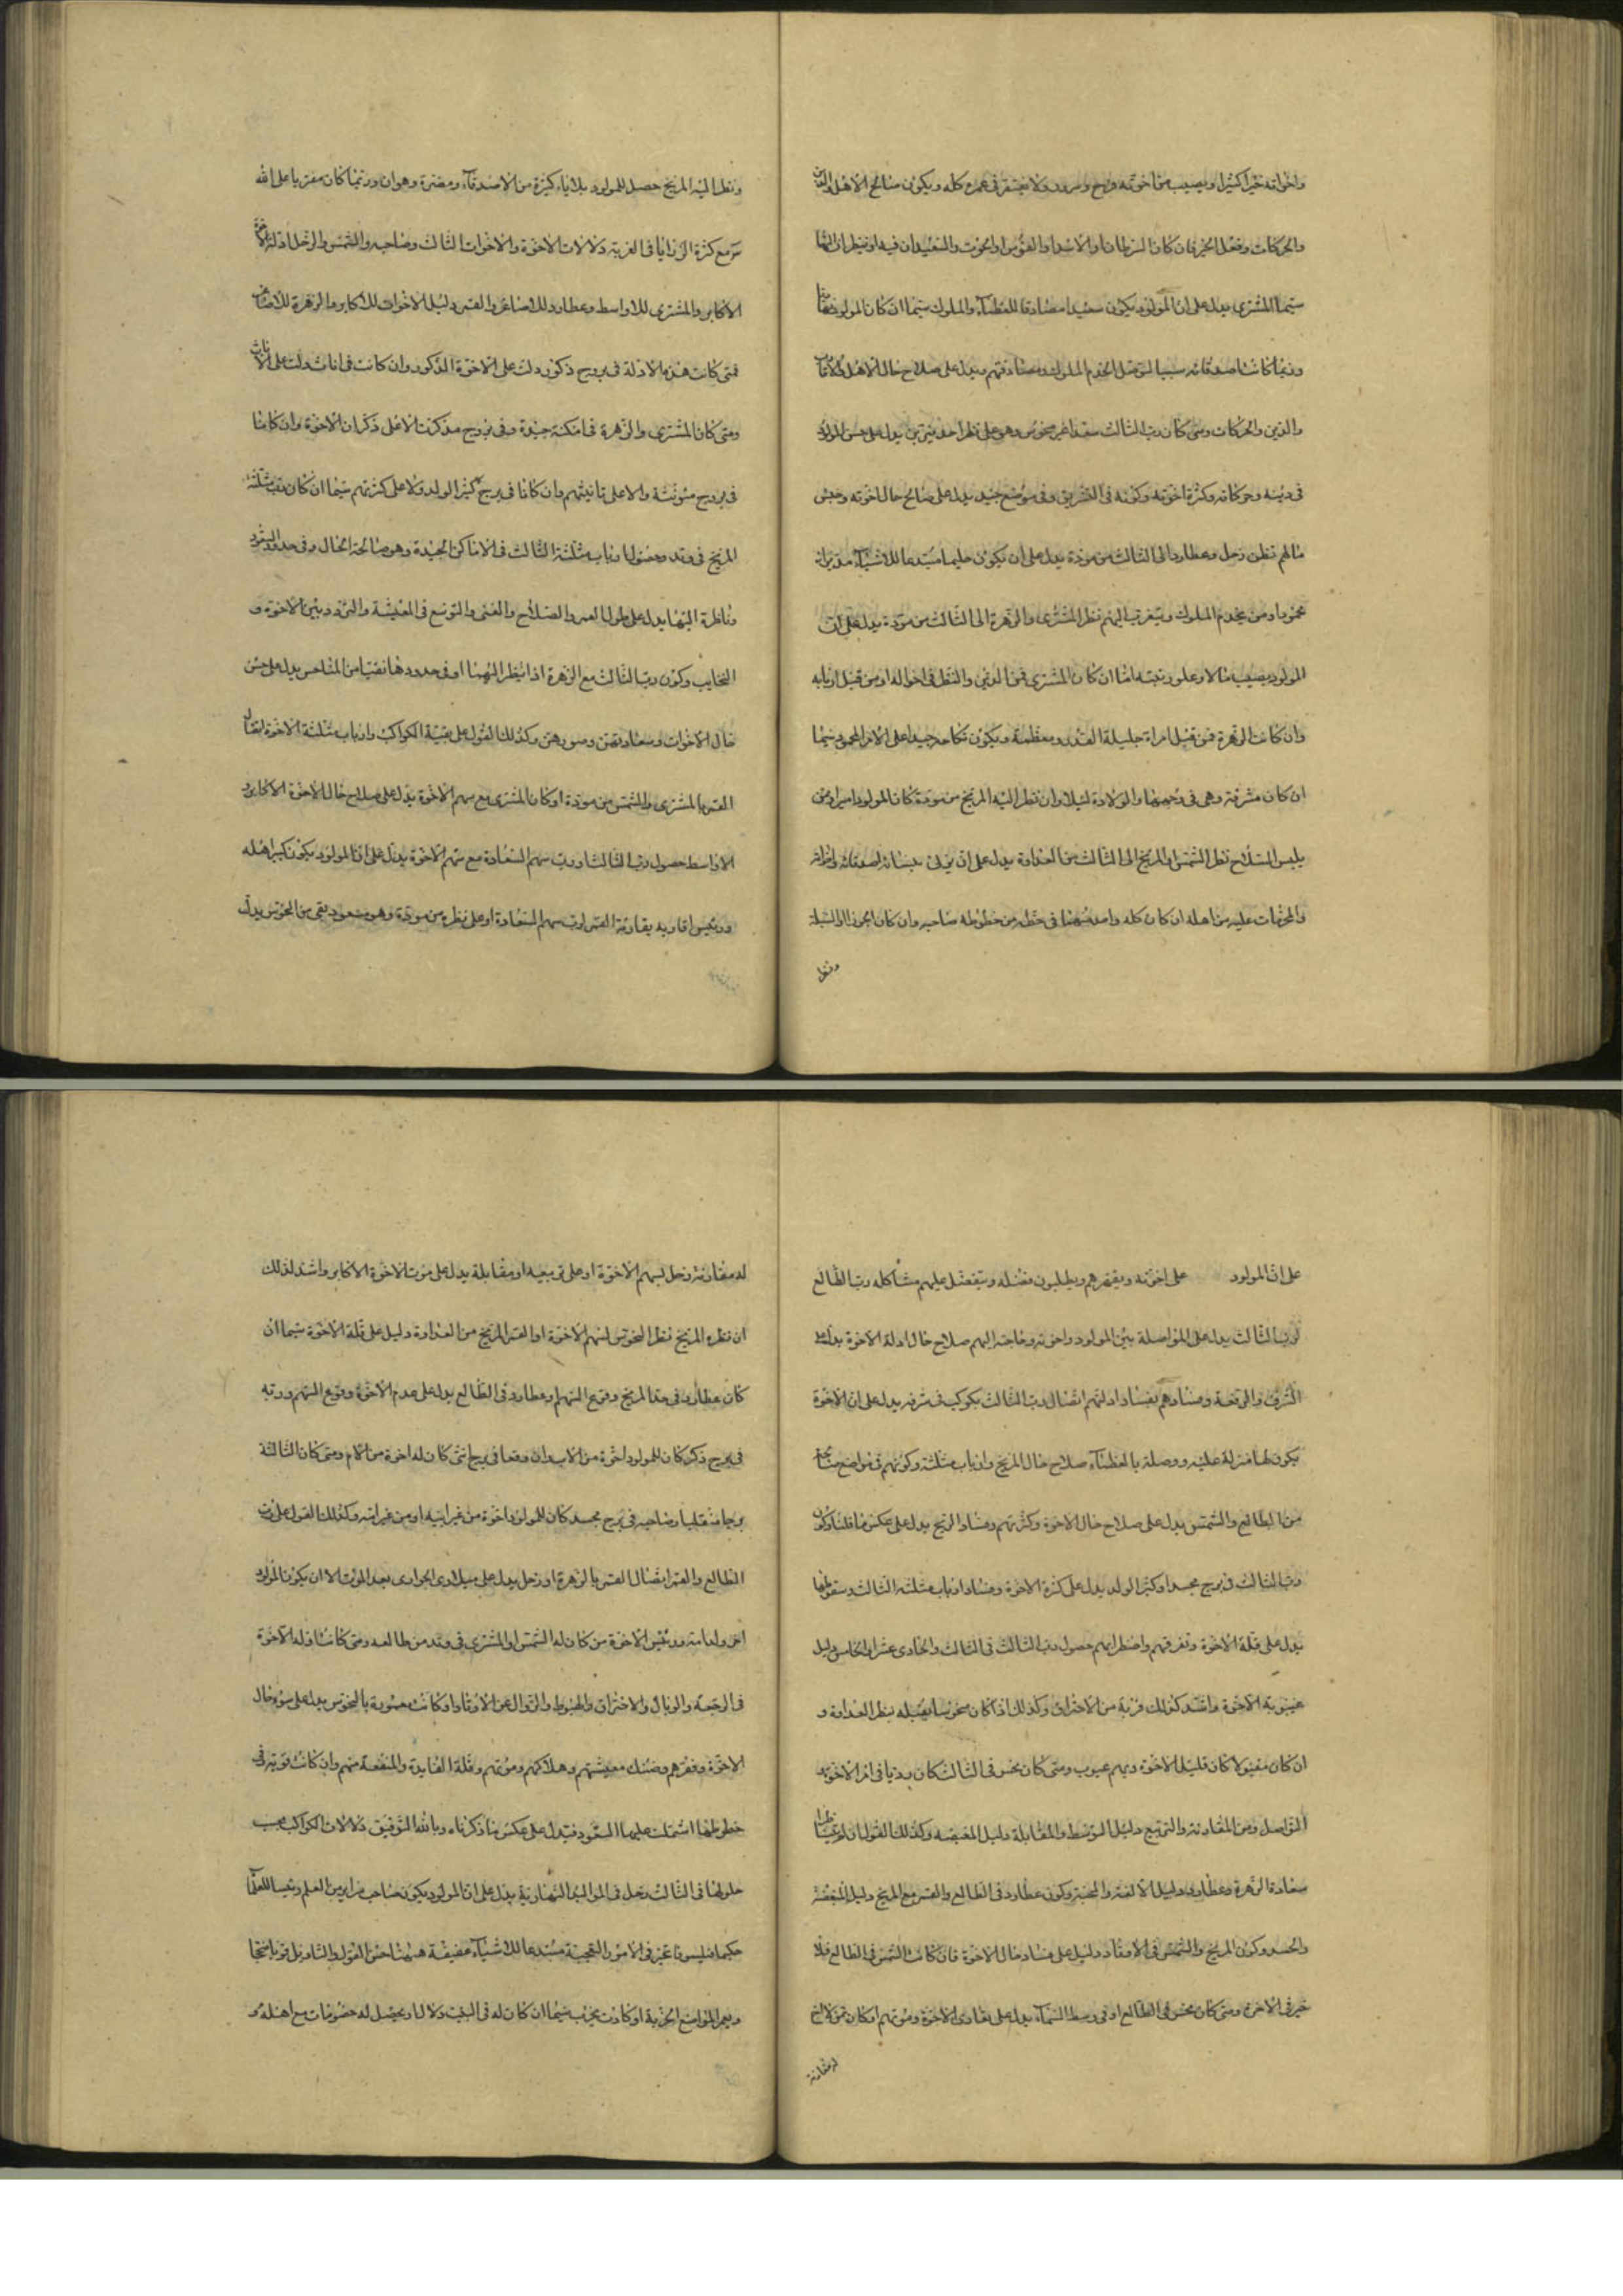 واخواته خيرا كثيرا ويصيب من اخوته فرح وسرور ولا يفتقر فى عمره كله ويكون صالح الاهل
والحركات وفعل الخير فان كان السرطان او الاسد او القوس او الحوت والسعيدان فيه او ينظران اليها
سيما المشترى يدل على ان المولود يكون سعيدا مصادقا للعظماء والملوك سيما ان كان المولود
وربما كانت اصدقائه سببا لتوصل لخدم الملوك ومصادقتهم ويدل على صلاح حال الاهل
والدين والحركات ومتى كان رب الثالث سعدا غير منحوس وهو على نظر احد نيرين يدل على حسن المولود
فى دينه وحركاته وكثرة اخوته وكونه فى التشريق وفى موضع جيد يدل على صالح حال اخوته وحسن
مالم نظر زحل وعطارد الى الثالث من مودة يدل على ان يكون حليما مبتدعا للاشياء
ممن يخدم الملوك ويتقرب اليهم نظر المشترى والزهرة الى الثالث من مودة يدل على ان
المولود يصيب مالا وعلو رتبته اما ان كان المشترى فمن الغنى والنظر فى احواله او من قبل اربابه
وان كانت الزهرة فمن قبل امراة جليلة القدر ومعظمة ويكون نكاحه جيدا على الامر المحمود سيما
ان كان مشرقة وهى فى والولادة ليلا وان نظر اليه المريخ من مودة كان المولود اميرا ومن
يلبس السلاح نظر الشمس او المريخ الى الثالث من العداوة يدل على ان
والمحرمات عليه من اهله ان كان كله وامد فى حظه من حظوظه صاحبه وان كان الجوزا او السنبلة
ونظر
ونظر اليه المريخ حصل للمولود بلايا كثيرة من الاصدقاء ومضرة وهوان وربما كان مفتريا على الله
مع كثرة الرزايا فى الغربة دلالات الاخوة والاخوات الثالث وصاحبه والشمس والزحل ادلة
الاكابر والمشترى للاواسط وعطارد للاصاغر والقمر دليل الاخوات للاكابر والزهرة
فمتى كانت هذه الادلة فى بروج ذكور دلت على الاخوة الذكور وان كانت فى اناث دلت على الاناث
ومتى كانا المشترى والزهرة فى امكنة جيدة وفى بروج مذكرة على ذكران الاخوة وان كانا
فى بروج مؤنثة والا على تانيثهم وان كانا فى بروج كثير الولد على كثرتهم سيما ان كان رب مثلثة
المريخ فى وتد وحصول ارباب مثلثة الثالث فى الاماكن الجيدة وهو صالحة الحال وفى حدود السعود
وناظرة اليها يدل على طول العمر والصلاح والغنى والتوسع فى المعيشة والتودد بين الاخوة و
وكون رب الثالث مع الزهرة اذا نظر اليهما او فى حدودها نقيا من المناحس يدل على حسن
حال الاخوات وسعادتهن وسرورهن وكذلك القول على بقية الكواكب وارباب مثلثة الاخوة اتصال
القمر بالمشترى والشمس من مودة او كان المشترى مع سهم الاخوة يدل على صلاح حال الاخوة الاكابر و
الاواسط حصول رب الثالث او رب سهم السعادة مع سهم الاخوة يدل على ان المولود يكون كبير اهله
ورئيس اقاربه مقارنة القمر لرب سهم السعادة او على نظره من مودة وهو مسعود نقى من النحوس يدل
على ان المولود على اخوته ويقهرهم ويطلبون فضله ويتفضل عليهم مشاكله رب الطالع
لرب الثالث يدل على المواصلة بين المولود واخوته وحاجته اليهم صلاح حال ادلة الاخوة يدل على
الشرف والرفعة وفسادهم بفساد ادلتهم اتصال رب الثالث بكوكب فى شرفه يدل على ان الاخوة
يكون لها منزلة عليه ووصلة بالعظماء صلاح حال المريخ وارباب مثلثة وكونهم فى مواضع
من الطالع والشمس يدل على صلاح حال الاخوة وكثرتهم وفساد المريخ يدل على عكس ما قلنا وكون
رب الثالث فى بروج مجسد او كثير الولد يدل على كثرة الاخوة وفساد ارباب مثلثه الثالث وسقوطها
يدل على قلة الاخوة وتفرقهم واضطرابهم حصول رب الثالث فى الثالث والحادى عشر او الخامس دليل
غيبوبة الاخوة واشد كذلك قربة من الاحتراق وكذلك اذا كان منحوسا يقبله بنظر العداوة و
ان كان مقبولا كان قليل الاخوة وبهم عيوب ومتى كان نحس فى الثالث كان رديا فى امر الاخوة
التواصل ومن المقارنة والتربيع دليل التوسط والمقابلة دليل المغيصه وكذلك القول
سعادة الزهرة وعطارد دليل الالفة والمحبة وكون عطارد فى الطالع والقمر مع المريخ دليل المبغضة
والحسد وكون المريخ والشمس فى الاوتاد دليل على فساد حال الاخوة فان كانت الشمس فى الطالع فلا
خير فى الاخوة ومتى كان نحس فى الطالع او فى وسط السماء يدل على تعادى الاخوة وموتهم
لمقارنة
له مقارنة زحل لسهم الاخوة او على تربيعه او مقابلة يدل على موت الاخوة الاكابر واشد لذلك
ان نظره المريخ نظر النحوس لسهم الاخوة او القمر المريخ من العداوة دليل على قلة الاخوة سيما ان
كان عطارد فى حد المريخ وقوع السهم او عطارد فى الطالع يدل على عدم الاخوة وقوع السهم وربه
فى بروج ذكر كان للمولود اخوة من الاب وان وقعا فى برج انثى كان له اخوة من الام ومتى كان الثالثة
برجا منقلبا وصاحبه فى برج مجسد كان للمولود اخوة من غير ابيه او من غير امه وكذلك القول على رب
الطالع والقمر اتصال القمر بالزهرة او زحل يدل على ميلاد الجوارى بعد الموت الا ان يكون المولود
اخر ولد امه ورئيس الاخوة من كان له الشمس او المشترى فى وتد من طالعه ومتى كانت ادلة الاخوة
فى الرجعة والوبال والاحتراق والهبوط والزوال عن الاوتاد او كانت بالنحوس يدل على سوء حال
الاخوة وفقرهم وضنك معيشتهم وهلاكهم وموتهم وقلة الفايدة والمنفعة منهم وان كانت قوية فى
حظوظها اشتملت عليها السعود فيدل على عكس ما ذكرناه وبالله التوفيق دلالات الكواكب بحسب
حلولها فى الثالث زحل فى المواليد النهارية يدل على ان المولود يكون صاحب
حكيما فيلسوفا فى الامور العجيبة مبتدعا للاشياء حسن القول والتاويل
ويعمر المواضع الخربة او كادت يخرب سيما ان كان له فى البيت دلالة ويحصل له خصومات مع اهله و